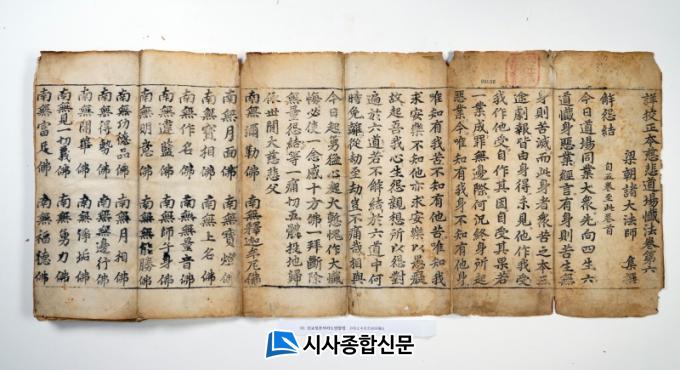 詳校正本慈悲道場懺法卷第六
梁朝諸大法師 集撰
解怨結 自五卷至此卷首
今日道場同業大衆先向四生六
道懺身惡業經言有身則苦生無
身則苦滅而此身者衆苦之本三
途劇報皆由身得未見他作我受
我作他受自作其因自受其果若
一業成罪無邊際何況終身所起
惡業今唯知有我身不知有他身
唯知有我苦不知有他苦唯知我
求安樂不知他亦求安樂以愚癡
故起吾我心生怨親想所以怨對
遍於六道若不解結於六道中何
時免離從劫至劫豈不痛哉相與
今日起勇猛心起大慚愧作大懺
悔必使一念感十方佛一拜斷除
無量怨結等一痛切五體投地歸
依世間大慈悲父
南無彌勒佛 南無釋迦牟尼佛
南無月面佛 南無寶燈佛
南無寶相佛 南無上名佛
南無作名佛 南無無量音佛
南無違藍佛 南無師子身佛
南無明意佛 南無無能勝佛
南無功德品佛 南無月相佛
南無得勢佛 南無無邊行佛
南無開華佛 南無淨垢佛
南無見一切義佛 南無勇力佛
南無富足佛 南無福德佛
시사종합신문